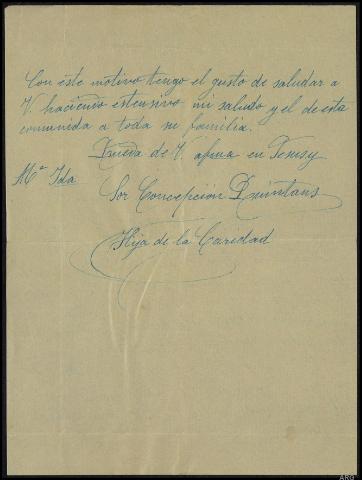 Con este motivo tengo el gusto de saludar a
V. haciendo estensivo mi saludo y el de esta
comunida a toda su familia.
Queda de V. afma en
Mª Ida
Sor Concepcion Quintans
Hija de la Caridad
ARG